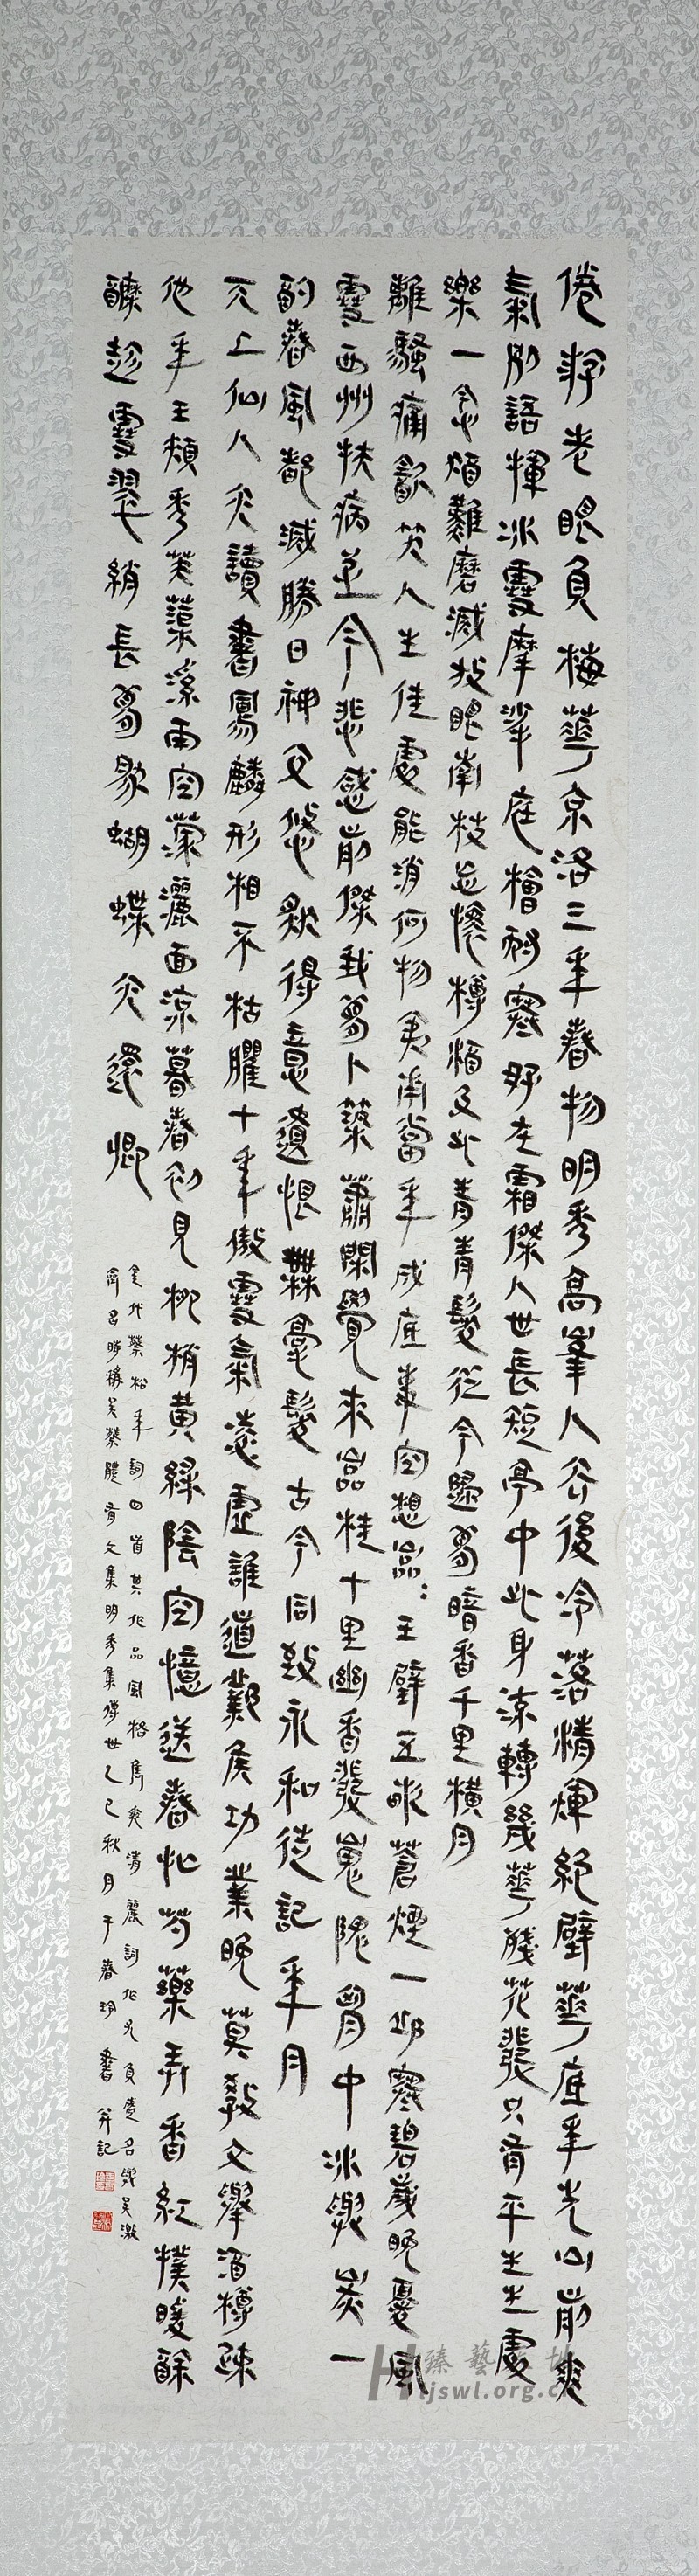 倦游老眼負梅華京洛三年春物明秀高峯人去後冷落清輝絕壁華底年光山前爽
氣別語揮冰雪摩挲庭檜耐寒好在霜傑人世長短亭中此身流轉幾華殘花發只有平生生處
樂一念猶難磨滅放眼南枝忘懷樽酒及此青青髮從今歸夢暗香千里橫月
離騷痛飲笑人生佳處能消何物夷甫當年成底事空想嵒嵒玉壁五畝蒼煙一邱寒碧歲晚憂風
雪西州扶病至今悲感前傑我夢卜築蕭閑覺來嵒桂十里幽香發嵬隗胸中冰與炭一
酌春風都滅勝日神交悠然得意遺恨無毫髮古今同致永和徒記年月
天上仙人亦讀書鳳麟形相不枯臞十年傲雪氣凌虛誰道鄴侯功業晚莫教文舉酒樽疎
他年玉頰秀芙蕖溪雨空濛灑面涼暮春初見柳梢黃綠陰空憶送春忙芍藥弄香紅撲暖酴
醿趁雪翠綃長夢為蝴蝶亦還鄉
金代蔡松年詞四首其作品風格雋爽清麗詞作尤負盛名與吳激
齊名時稱吳蔡體有文集明秀集傳世乙巳秋月于春玥書并記
臻藝
jswl.org.c